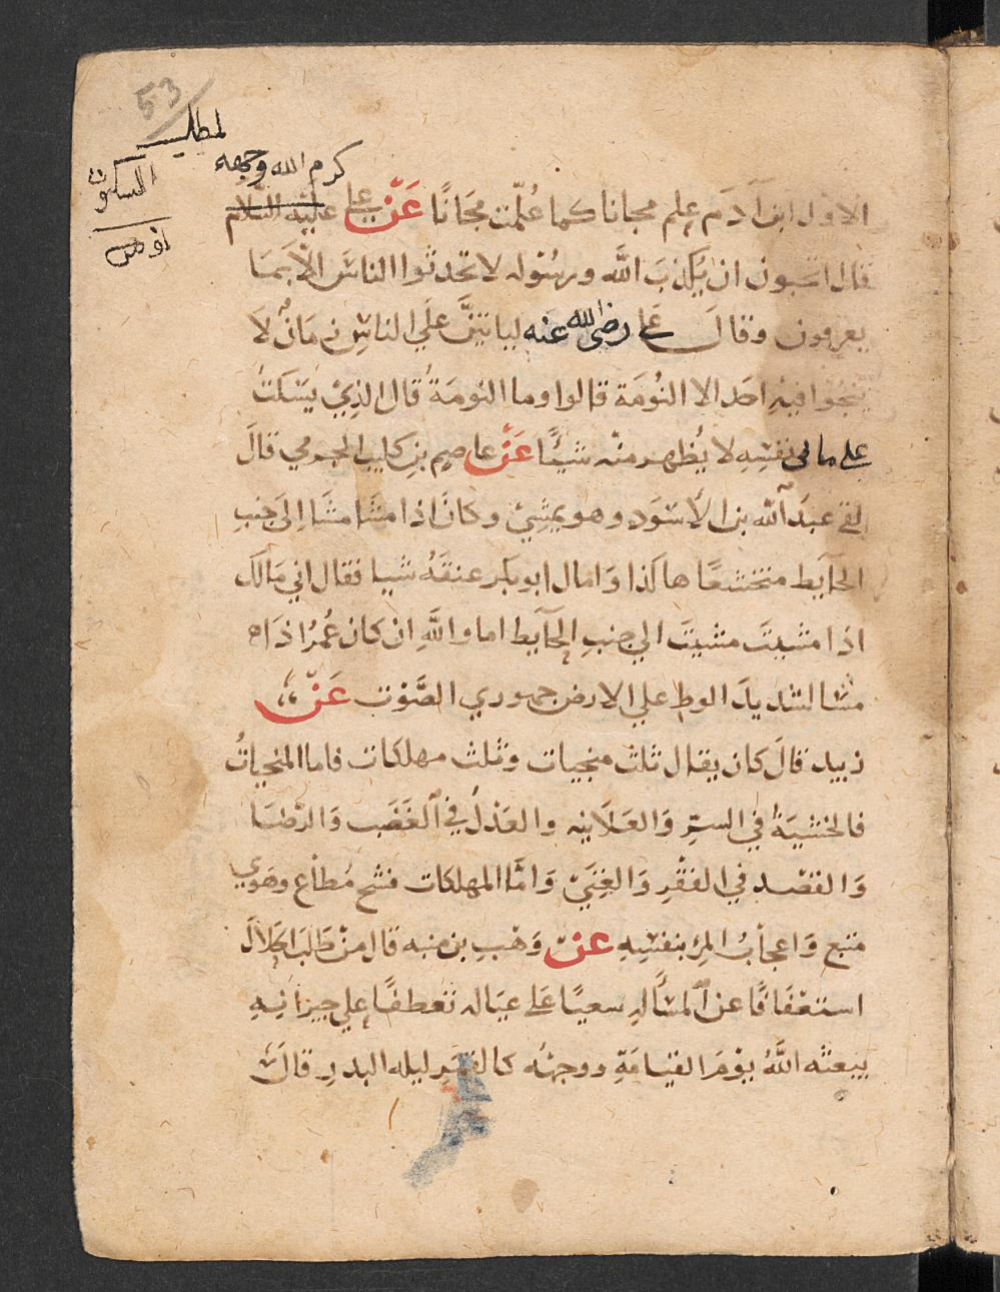 53
لمطلب
السكوت
كرم الله وجهه
الاول ابن آدَم علم مجانا كما عُلّمت مجَانًا عَنْ علي عليْه السّلام
قال اتحبون ان يُكذبَ اللَّه ورسُوله لا تحدثوا الناسَ الّا بمَا
يعرفون وقالَ علي رضي الله عنه لياتينَّ علَي الناسِ زمَانٌ لَا
ينجوا فيهِ احَد الا النُومَة قالوا وما النومَةُ قال الذِيْ يسْكتُ
علي ما في نفسِهِ لا يُظهر منْه شيْئًا عَنْ عاصِم بنِ كليب الجرمي قالَ
لقي عبدَ اللَّه بن الاَسْوَد وهو يمشِيْ وكانَ اذا مشَا مشَا اِلَى جَنبِ
الحَآيط متخشعًا هاكذا وَامال ابو بكر عنقَهُ شيا فقال ابي مَالكَ
اذا مشيتَ مشيتَ الي جنبِ الحَآيط اما واللَّهِ ان كان عُمرُ اذَا
مشا لشديدَ الوطِ علي الارض جهوري الصَّوْت عَنْ
زبيد قالَ كان يقال ثلث منجيات وثلث مهلكات فاما المنجياتُ
فالخشيَةُ في السرِّ وَالعَلَانيه والعَدْلُ في الغَضَب وَالرّضَا
وَالقصْد في الفقْرِ وَالغِنَيْ وَامَّا المهلكات فشح مُطاع وهَوي
متبع وَاعجابُ المرِ بنفسِهِ عَنْ وَهْبِ بن منبه قال منْ طَلبَ الحَلالَ
استعْفَافًا عن المسْأَلهِ سعيًا عَلي عيَاله تعَطفًا علي جيرَانِهِ
يبعثه اللَّهُ يوْمَ القيَامَةِ ووجهُه كالقمَرِ ليله البدرِ قالَ